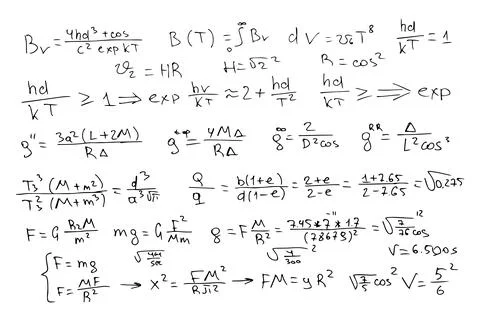 Bν = 4hd³ + cos / c² exp kT    B(T) = ∫₀^∞ Bν    d V = 2πT⁸    hd / kT = 1
ϑ₂ = HR    H = √2²    R = cos²
hd / kT ≥ 1 ⇒ exp hν / KT ≈ 2 + hd / T²    hd / kT ≥ ⇒ exp
g" = 3a²(L+2M) / RΔ    = 4MΔ / RΔ    g^∞ = 2 / D²cos    g^RR = Δ / L²cos³
T₃³(M+m²) / T₂³(M+m³) = d³ / a³√π    Q / q = b(1+e) / d(1-e) = 2+e / 2-e = 1+2.65 / 2-7.65 = √0.275
F = G R₂M / m²    mg = G F² / Mm    g = F M / R² = 745*7⁻¹¹*17 / (78678)² = √7 / 76 cos¹²
√4M / 5R    √4 / 300²    V = 6.500s
{ F = mg
F = MF / R² → x² = FM² / RJI² → FM = yR²    √7/5 cos²    V = 5² / 6